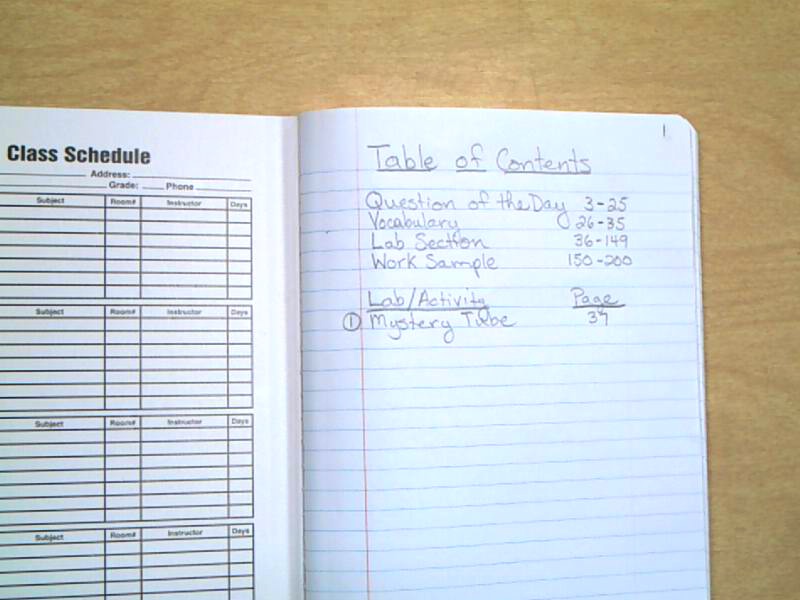 Class Schedule
Address:
Grade: Phone
Subject Room# Instructor Days
Subject Room# Instructor Days
Subject Room# Instructor Days
Subject Room# Instructor Days
1
Table of Contents
Question of the Day 3-25
Vocabulary 26-35
Lab Section 36-149
Work Sample 150-200
Lab/Activity Page
① Mystery Tube 37